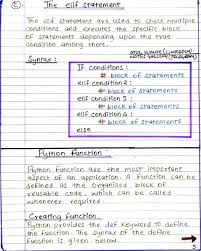 The elif statement
The elif statement are used to check multiple
conditions and executes the specific block
of statements depending upon the true
condition among them.
Syntax:
If conditions :
# block of statements
elif condition 2 :
# block of statements
elif condition 3 :
# block of statements
elif condition 4 :
# block of statements
else
Python Function
Python Function are the most important
aspect of an application. A function can be
defined as the organized block of
reusable code, which can be called
whenever required.
Creating function
Python provides the def keyword to define
the function. The syntax of the define
function is given below.